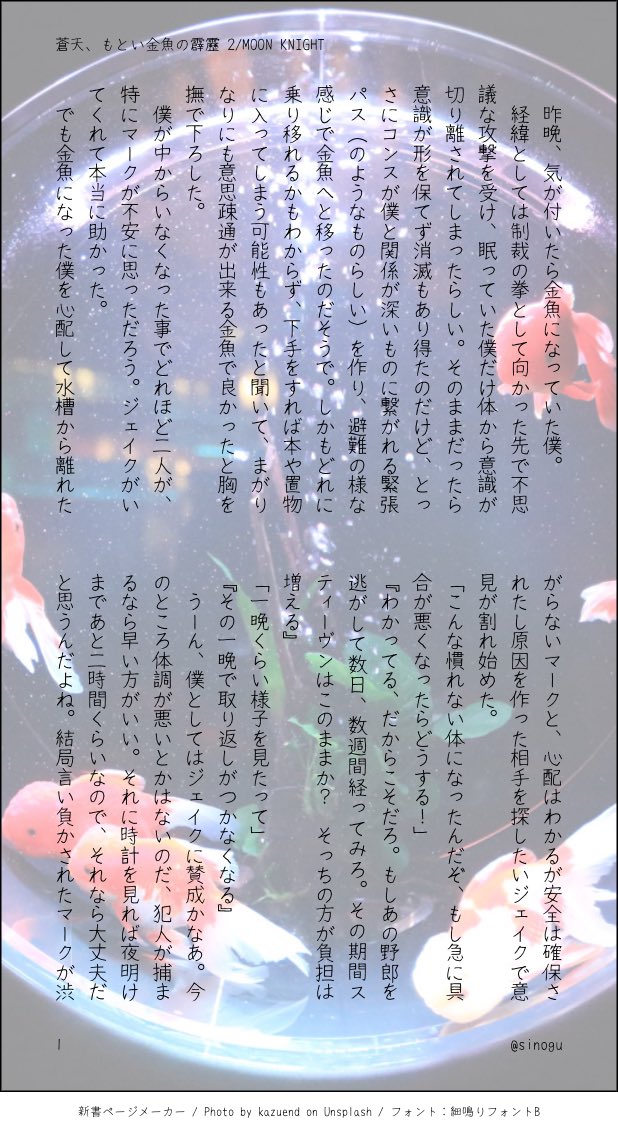 蒼天、もとい金魚の霹靂 2/MOON KNIGHT
昨晩、気が付いたら金魚になっていた僕。
経緯としては制裁の拳として向かった先で不思
議な攻撃を受け、眠っていた僕だけ体から意識が
切り離されてしまったらしい。そのままだったら
意識が形を保てず消滅もあり得たのだけど、とっ
さにコンスが僕と関係が深いものに繋がれる緊張
パス（のようなものらしい）を作り、避難の様な
感じで金魚へと移ったのだそうで。しかもどれに
乗り移れるかもわからず、下手をすれば本や置物
に入ってしまう可能性もあったと聞いて、まがり
なりにも意思疎通が出来る金魚で良かったと胸を
撫で下ろした。
僕が中からいなくなった事でどれほど二人が、
特にマークが不安に思っただろう。ジェイクがい
てくれて本当に助かった。
でも金魚になった僕を心配して水槽から離れた
がらないマークと、心配はわかるが安全は確保さ
れたし原因を作った相手を探したいジェイクで意
見が割れ始めた。
「こんな慣れない体になったんだぞ、もし急に具
合が悪くなったらどうする！」
『わかってる、だからこそだろ。もしあの野郎を
逃がして数日、数週間経ってみろ。その期間ス
ティーヴンはこのままか？　そっちの方が負担は
増える』
「一晩くらい様子を見たって」
『その一晩で取り返しがつかなくなる』
うーん、僕としてはジェイクに賛成かなあ。今
のところ体調が悪いとかはないのだ、犯人が捕ま
るなら早い方がいい。それに時計を見れば夜明け
まであと二時間くらいなので、それなら大丈夫だ
と思うんだよね。結局言い負かされたマークが渋
1
@sinogu
新書ページメーカー / Photo by kazuend on Unsplash / フォント：細鳴りフォントB